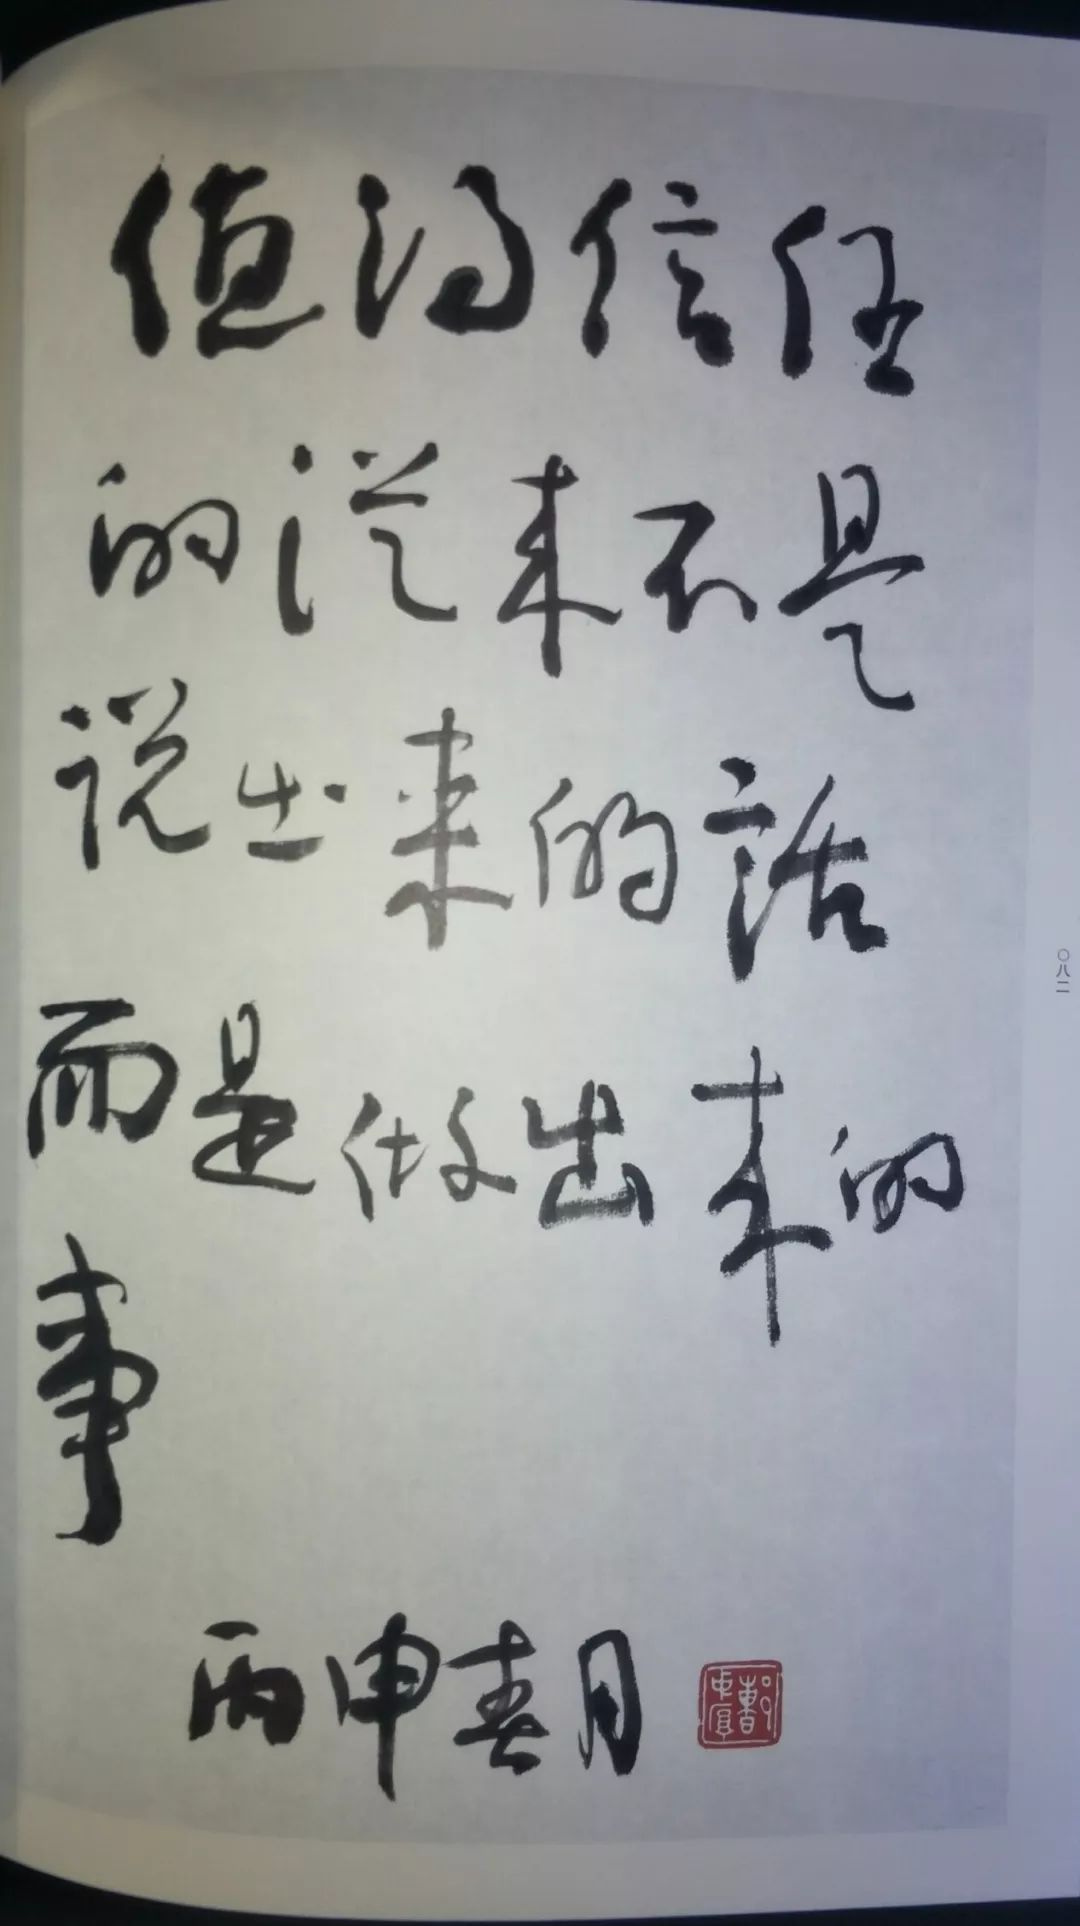 值得信任
的从来不是
说出来的话
而是做出来的
事
丙申春月
〇八二